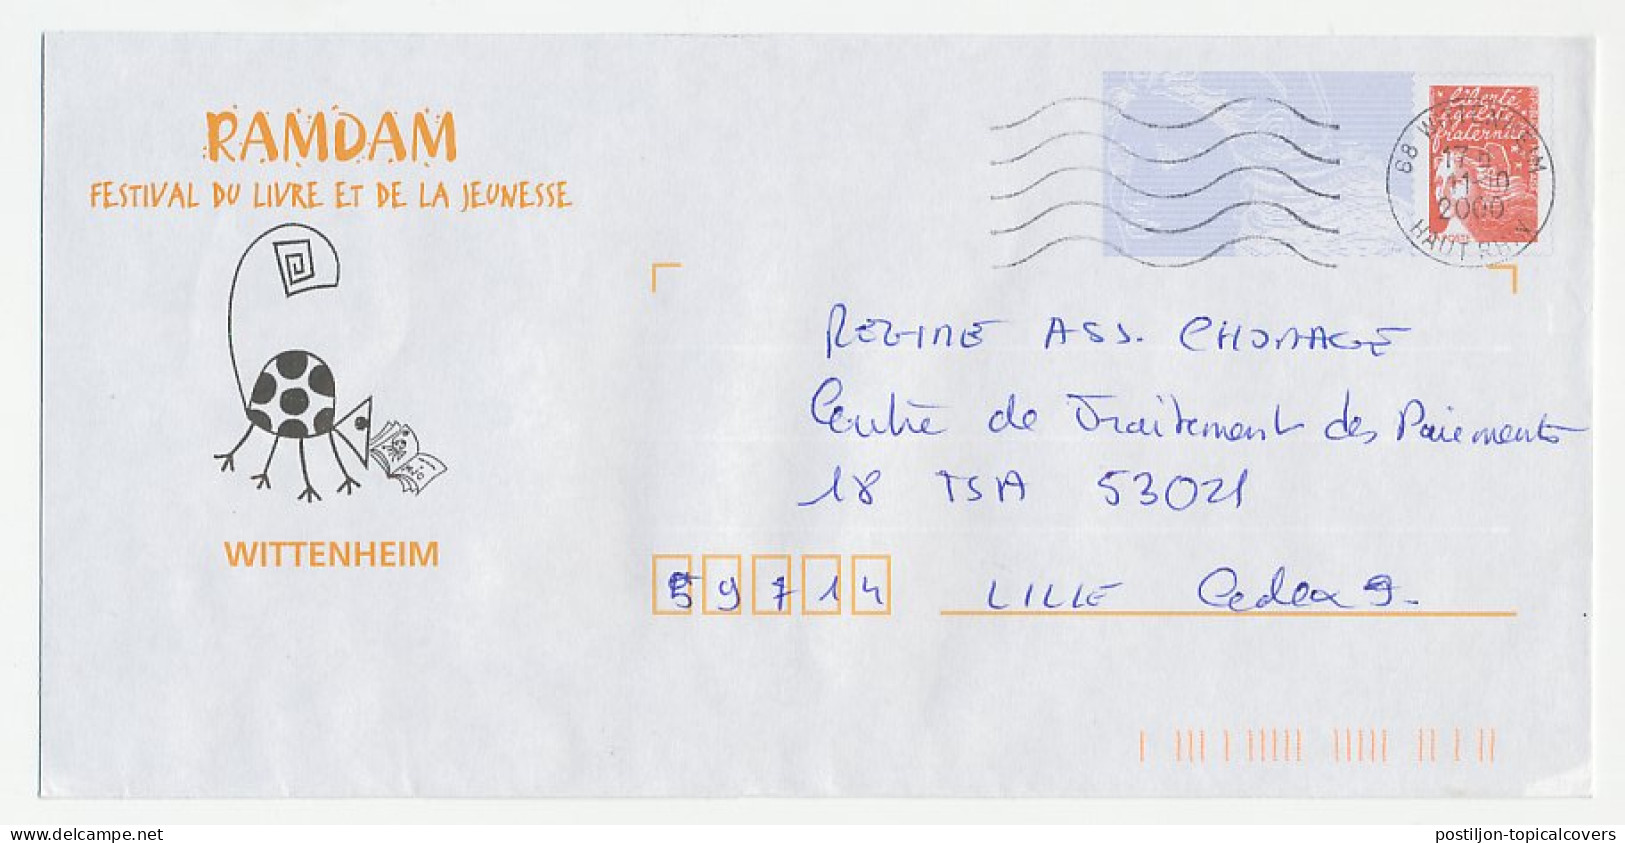 RAMDAM
FESTIVAL DU LIVRE ET DE LA JEUNESSE
WITTENHEIM
liberté
égalité
fraternité
68 WITTENHEIM
17 H
11-10
2000
HAUT RHIN
POSTE
REGIME ASS. CHOMAGE
Centre de Traitement des Paiements
18 TSA 53021
59714 LILLE Cedex 9.
postiljon-topicalcovers